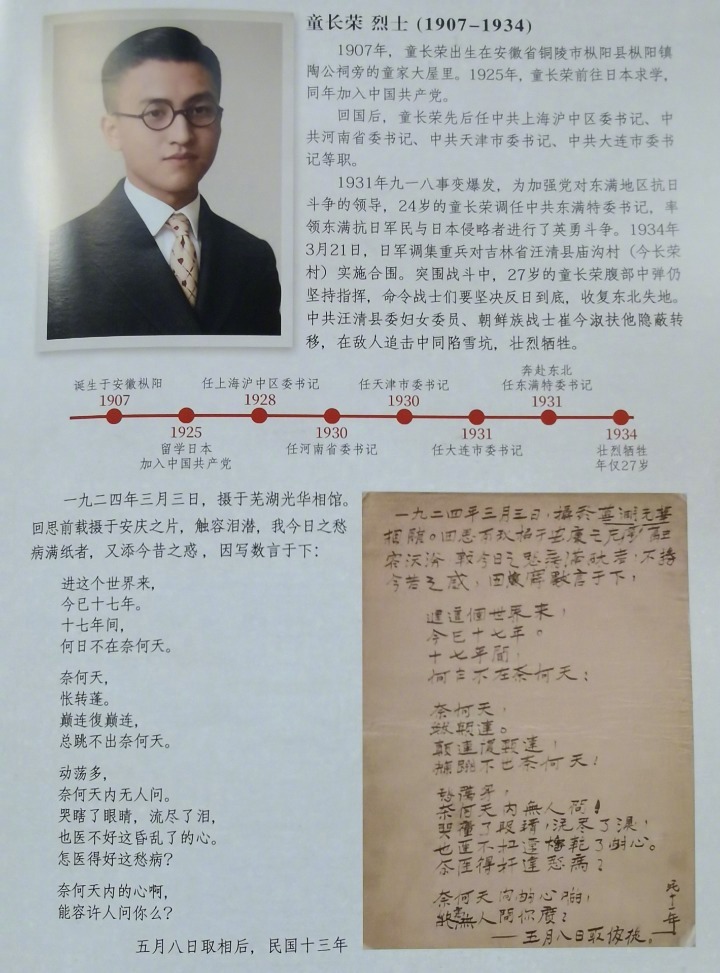 童长荣 烈士 (1907-1934)
1907年，童长荣出生在安徽省铜陵市枞阳县枞阳镇
陶公祠旁的童家大屋里。1925年，童长荣前往日本求学，
同年加入中国共产党。
回国后，童长荣先后任中共上海沪中区委书记、中
共河南省委书记、中共天津市委书记、中共大连市委书
记等职。
1931年九一八事变爆发，为加强党对东满地区抗日
斗争的领导，24岁的童长荣调任中共东满特委书记，率
领东满抗日军民与日本侵略者进行了英勇斗争。1934年
3月21日，日军调集重兵对吉林省汪清县庙沟村（今长荣
村）实施合围。突围战斗中，27岁的童长荣腹部中弹仍
坚持指挥，命令战士们要坚决反日到底，收复东北失地。
中共汪清县委妇女委员、朝鲜族战士崔今淑扶他隐蔽转
移，在敌人追击中同陷雪坑，壮烈牺牲。
诞生于安徽枞阳
1907
1925
留学日本
加入中国共产党
任上海沪中区委书记
1928
1930
任河南省委书记
任天津市委书记
1930
1931
任大连市委书记
奔赴东北
任东满特委书记
1931
1934
壮烈牺牲
年仅27岁
一九二四年三月三日，摄于芜湖光华相馆。
回思前载摄于安庆之片，触容泪潜，我今日之愁
病满纸者，又添今昔之惑，因写数言于下：
进这个世界来，
今已十七年。
十七年间，
何日不在奈何天。
奈何天，
怅转蓬。
巅连復巅连，
总跳不出奈何天。
动荡多，
奈何天内无人问。
哭瞎了眼睛，流尽了泪，
也医不好这昏乱了的心。
怎医得好这愁病？
奈何天内的心啊，
能容许人问你么？
五月八日取相后，民国十三年
一九二四年三月三日，攝於
數言于下，
這個世界来，
今已十七年。
十七年間，
不在奈何天；
奈何天，
奈何天！
奈何天內無人問！
了的心。
奈何天内的心
人問你
五月八日取